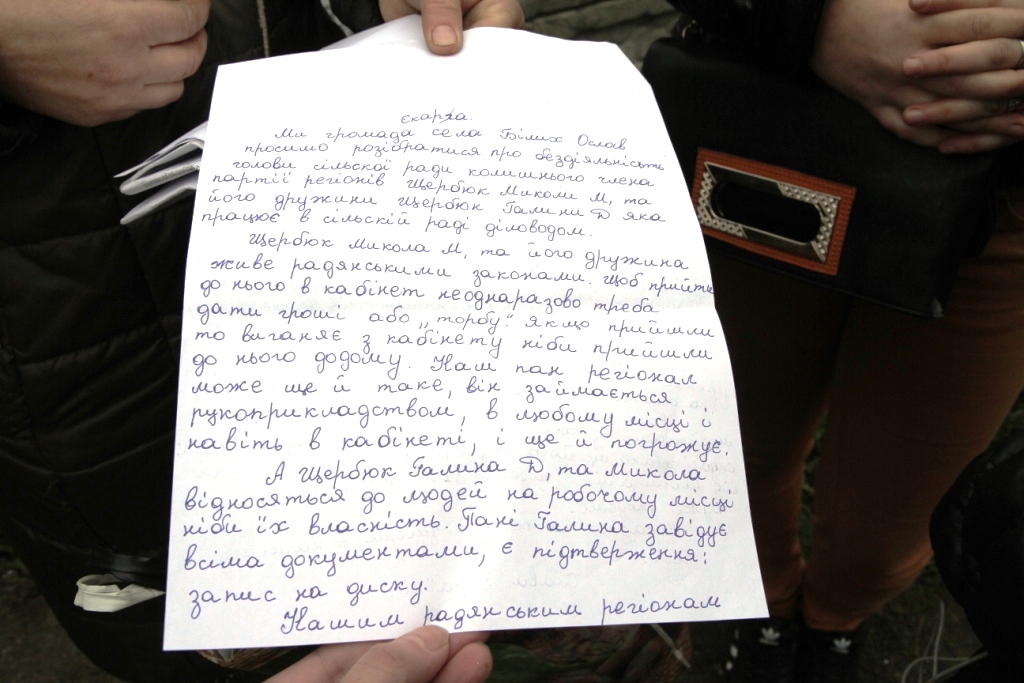 скарга.
Ми громада села Білих Ослав
просимо розібратися про бездіяльність
голови сільскої ради колишнього члена
партії регіонів Щербюк Миколи М, та
його дружини Щербюк Галини Д яка
працює в сільскій раді діловодом.
Щербюк Микола М, та його дружина
живе радянськими законами. щоб прийти
до нього в кабінет неоднаразово треба
дати гроші або „торбу". Якщо прийшли
то виганяє з кабінету ніби прийшли
до нього додому. Наш пан регіонал
може ще й таке, він займається
рукоприкладством, в любому місці і
навіть в кабінеті, і ще й погрожує.
А Щербюк Галина Д, та Микола
відносяться до людей на робочому місці
ніби їх власність. Пані Галина завідує
всіма документами, є підтверження:
запис на диску.
Нашим радянським регіонам